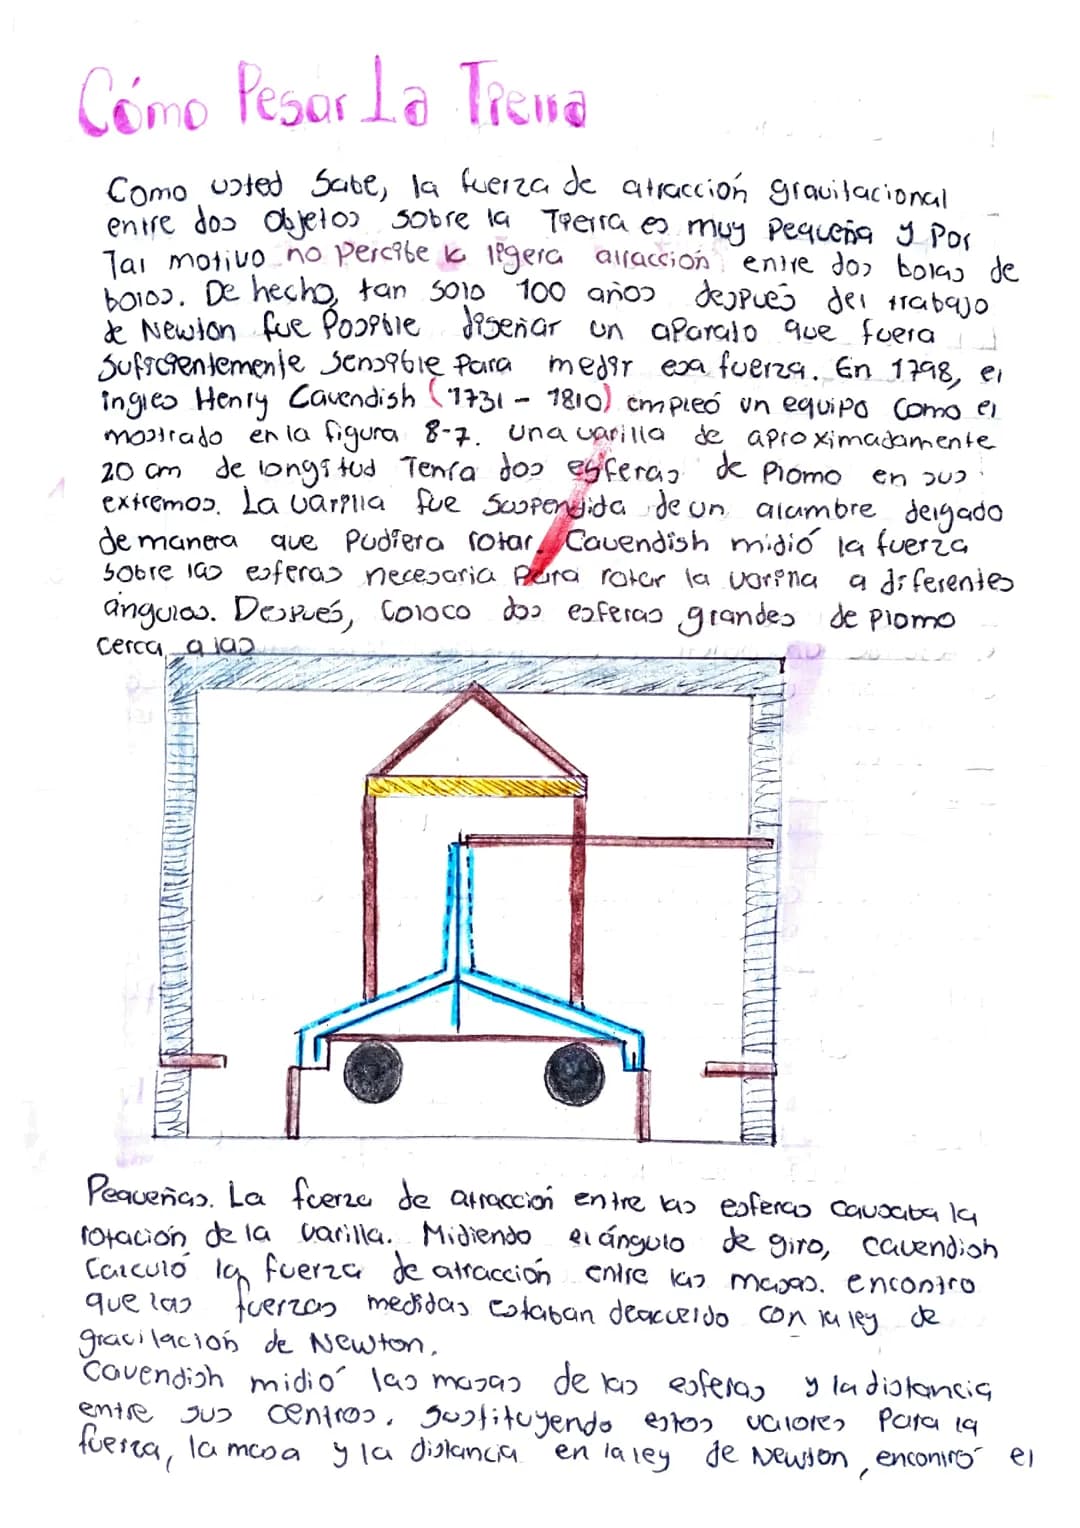 Cómo Pesar La Tierra
Como usted Sabe, la fuerza de atracción gravitacional
entre dos Objetos sobre la Tierra es muy Pequeña y Por
Tal motivo no percibe la ligera atracción entre dos bolas de
bolos. De hecho, tan solo 100 años después del trabajo
de Newton fue Posible diseñar un aparato que fuera
Suficientemente Sensible para medir esa fuerza. En 1798, el
ingles Henry Cavendish (1731 - 1810) empleó un equipo Como el
mostrado en la figura 8-7. Una varilla de aproximadamente
20 cm de longitud Tenía dos esferas de Plomo en sus
extremos. La varilla fue Suspendida de un alambre delgado
de manera que Pudiera rotar. Cavendish midió la fuerza
sobre las esferas necesaria Para rotar la varina a diferentes
ángulos. Después, Coloco dos esferas grandes de Plomo
cerca a las
Pequeñas. La fuerza de atracción entre las esferas causaba la
rotación de la varilla. Midiendo el ángulo de giro, Cavendish
Calculó la fuerza de atracción entre las masas. encontro
que las fuerzas medidas estaban deacuerdo con la ley de
gracilación de Newton.
Cavendish midió las masas de las esferas y la distancia
entre sus centros. Sustituyendo estos valores Para la
fuerza, la masa y la distancia en la ley de Newton, encontró el